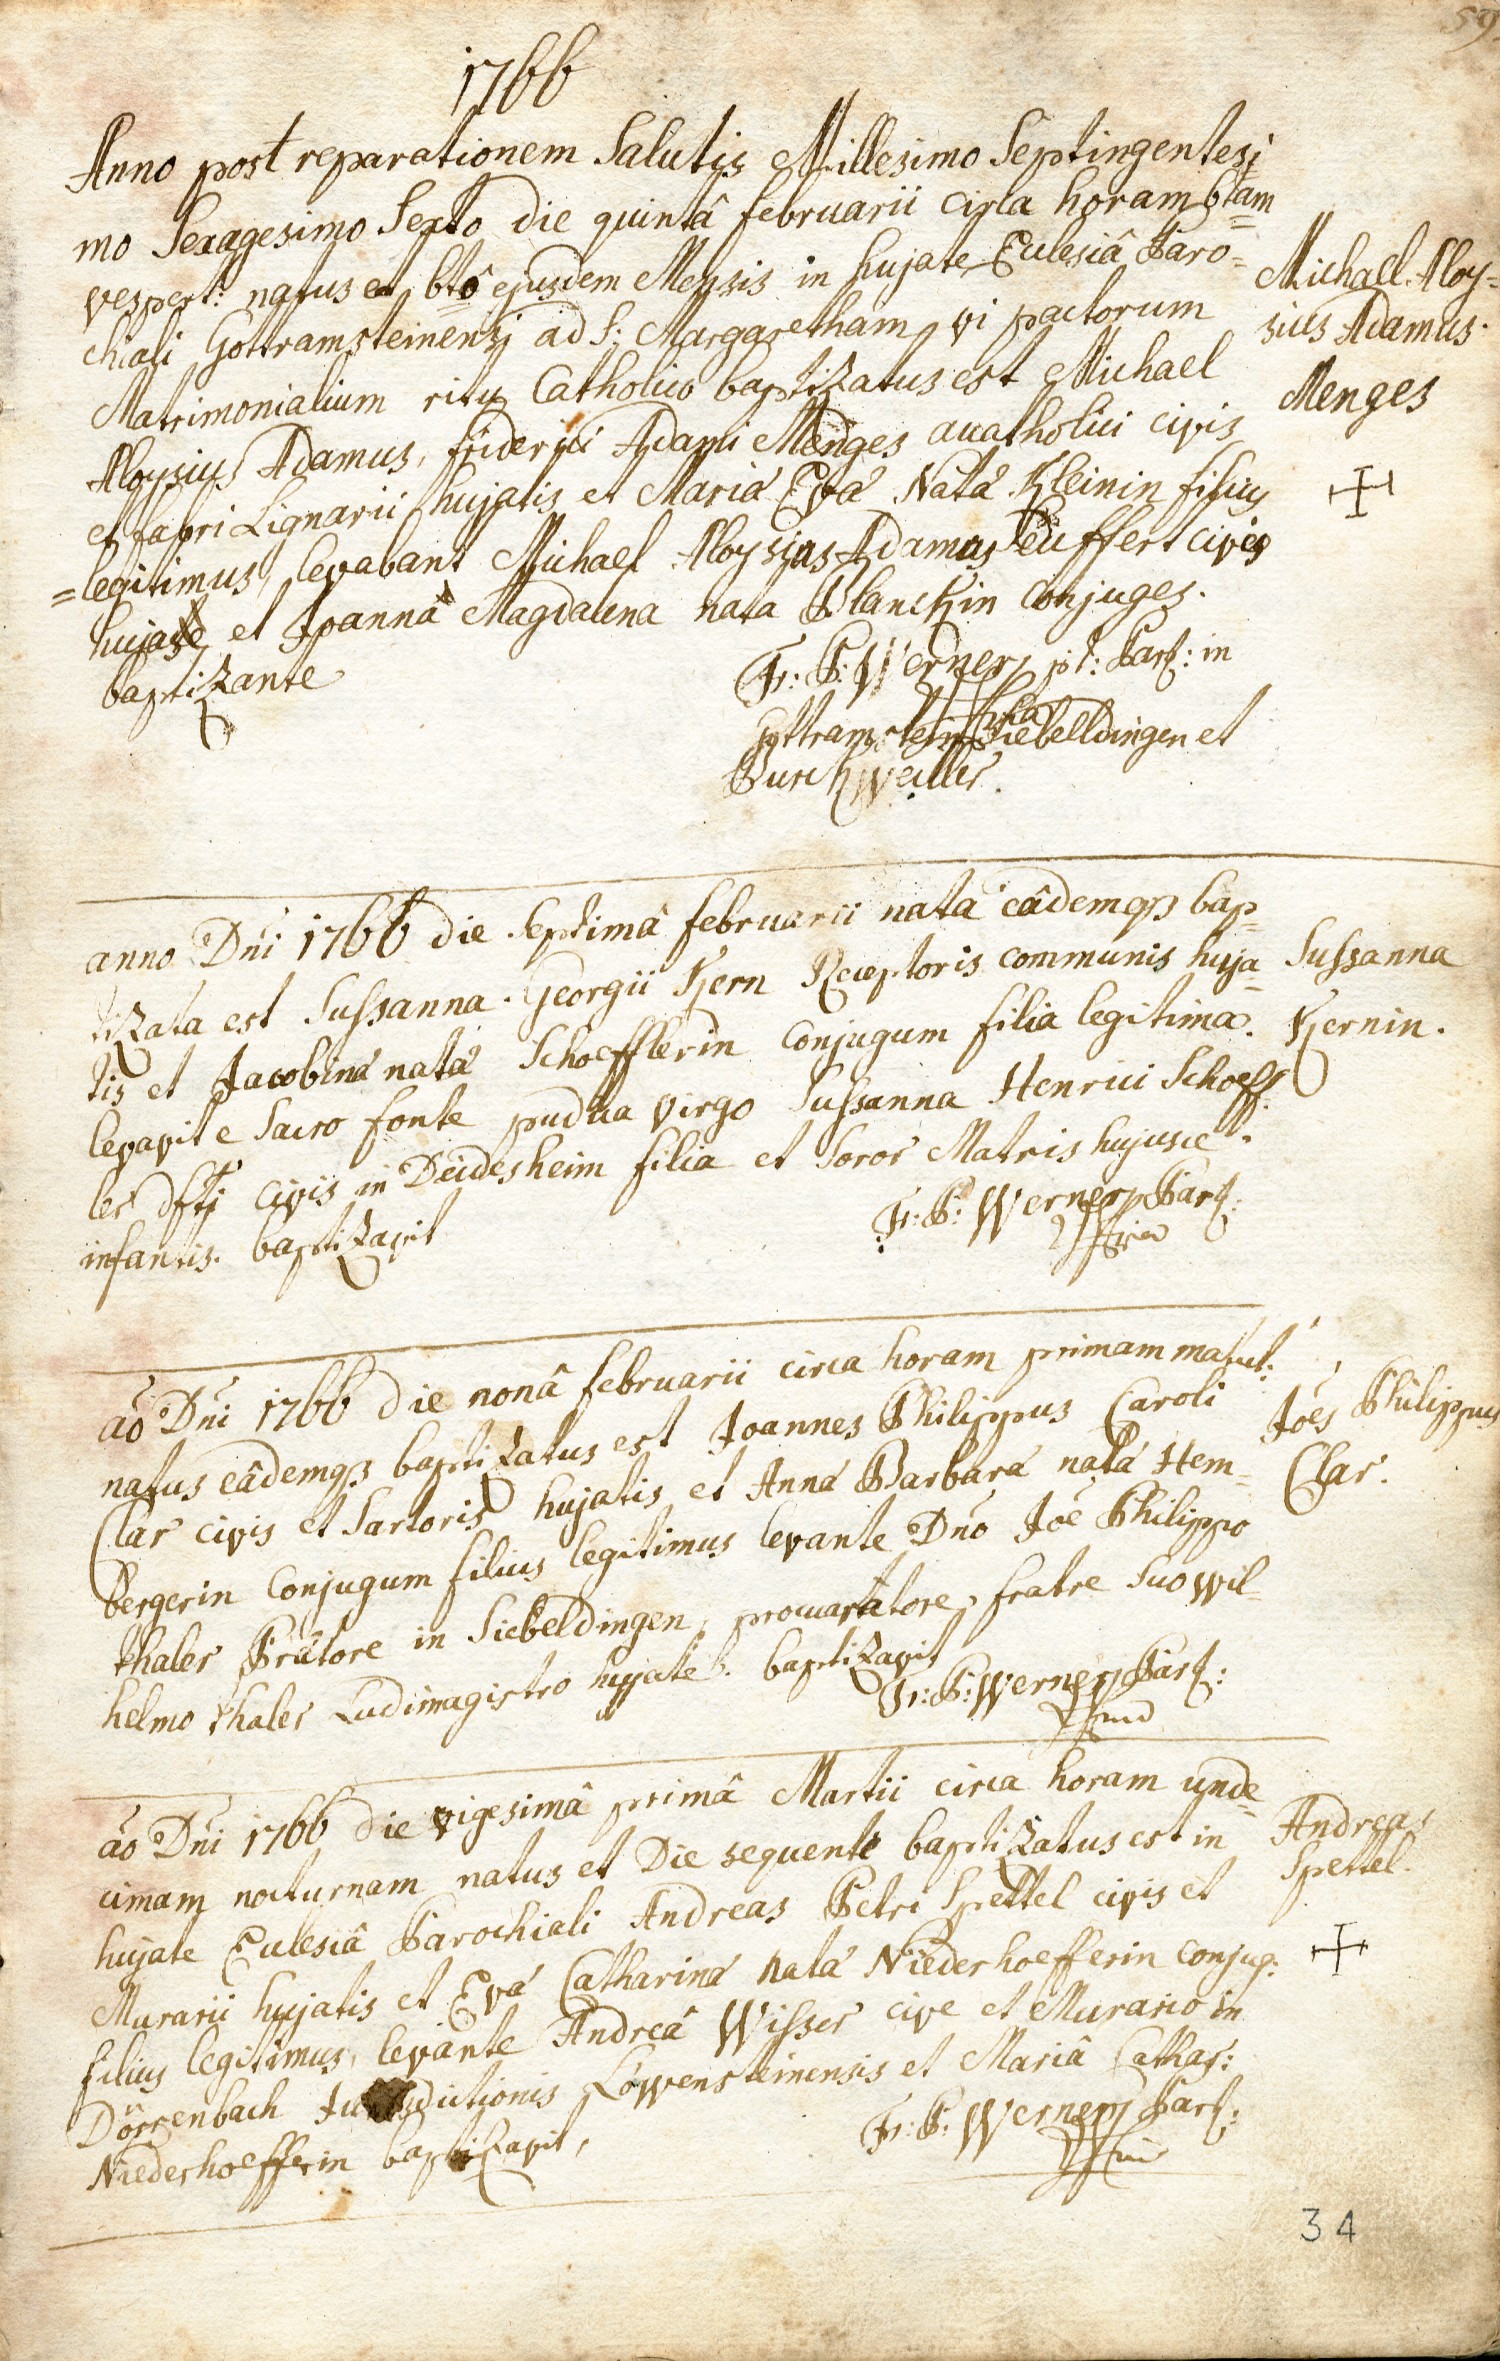 59.
1766
Anno post reparationem Salutis Millesimo Septingentesi
mo Sexagesimo Sexto die quintâ februarii circa horam 6tam
vespert: natus et 6tô ejusdem Mensis in hujate Ecclesiâ Paro=
chiali Gottramsteinensi ad S: Margaretham vi pactorum
Matrimonialium ritu Catholico baptizatus est Michael
Aloysius Adamus, friderici Adami Menges acatholici civis
et fabri Lignarii hujatis et Mariâ Evâ Natâ Kleinin filius
=legitimus, levabant Michael Aloysius Adamus Seuffert cives
hujate et Joanna Magdalena nata Blanckin Conjuges.
baptizante
Fr: P: Werner p:t: Parf: in
Gottramstein Siebelldingen et
Burckweiller.
Michael Aloy=
sius Adamus.
Menges
anno Dni 1766 die Septimâ februarii nata eâdemqз bap=
tizata est Sussanna. Georgii Kern Receptoris communis huja=
tis et Jacobinâ natâ Schoefflerin Conjugum filia legitima.
levavit e Sacro fonte pudica virgo Sussanna Henrici Schoeff=
ler dfti civis in Deidesheim filia et Soror Matris hujusce
infantis. baptizavit
Fr: P: Werner Parf:
Sussanna
Kernin.
aō Dni 1766 die nonâ februarii circa horam primam matut:
natus eâdemqз baptizatus est Joannes Philippus Caroli
Clar civis et Sartoris hujatis et Annâ Barbarâ natâ Hem=
bergerin Conjugum filius legitimus levante Dnō Joē Philippo
thaler Prætore in Siebeldingen, procuratore, fratre Suo wil=
helmo thaler Ludimagistro hujate. baptizavit
Fr: P: Werner Parf:
Joēs Philippus
Clar.
aō Dni 1766 die vigesimâ primâ Martii circa horam unde=
cimam nocturnam natus et Die sequente baptizatus est in
hujate Ecclesiâ Parochiali Andreas Petri Spettel civis et
Murarii hujatis et Evâ Catharinâ natâ Niederhoefferin conjug:
filius legitimus, levante Andreâ Wisser cive et Murario in
Dörrenbach Jurisdictionis Löwensteinensis et Mariâ Cathar:
Niederhoefferin baptizavit,
Fr: P: Werner Parf:
Andreas
Spettel.
34